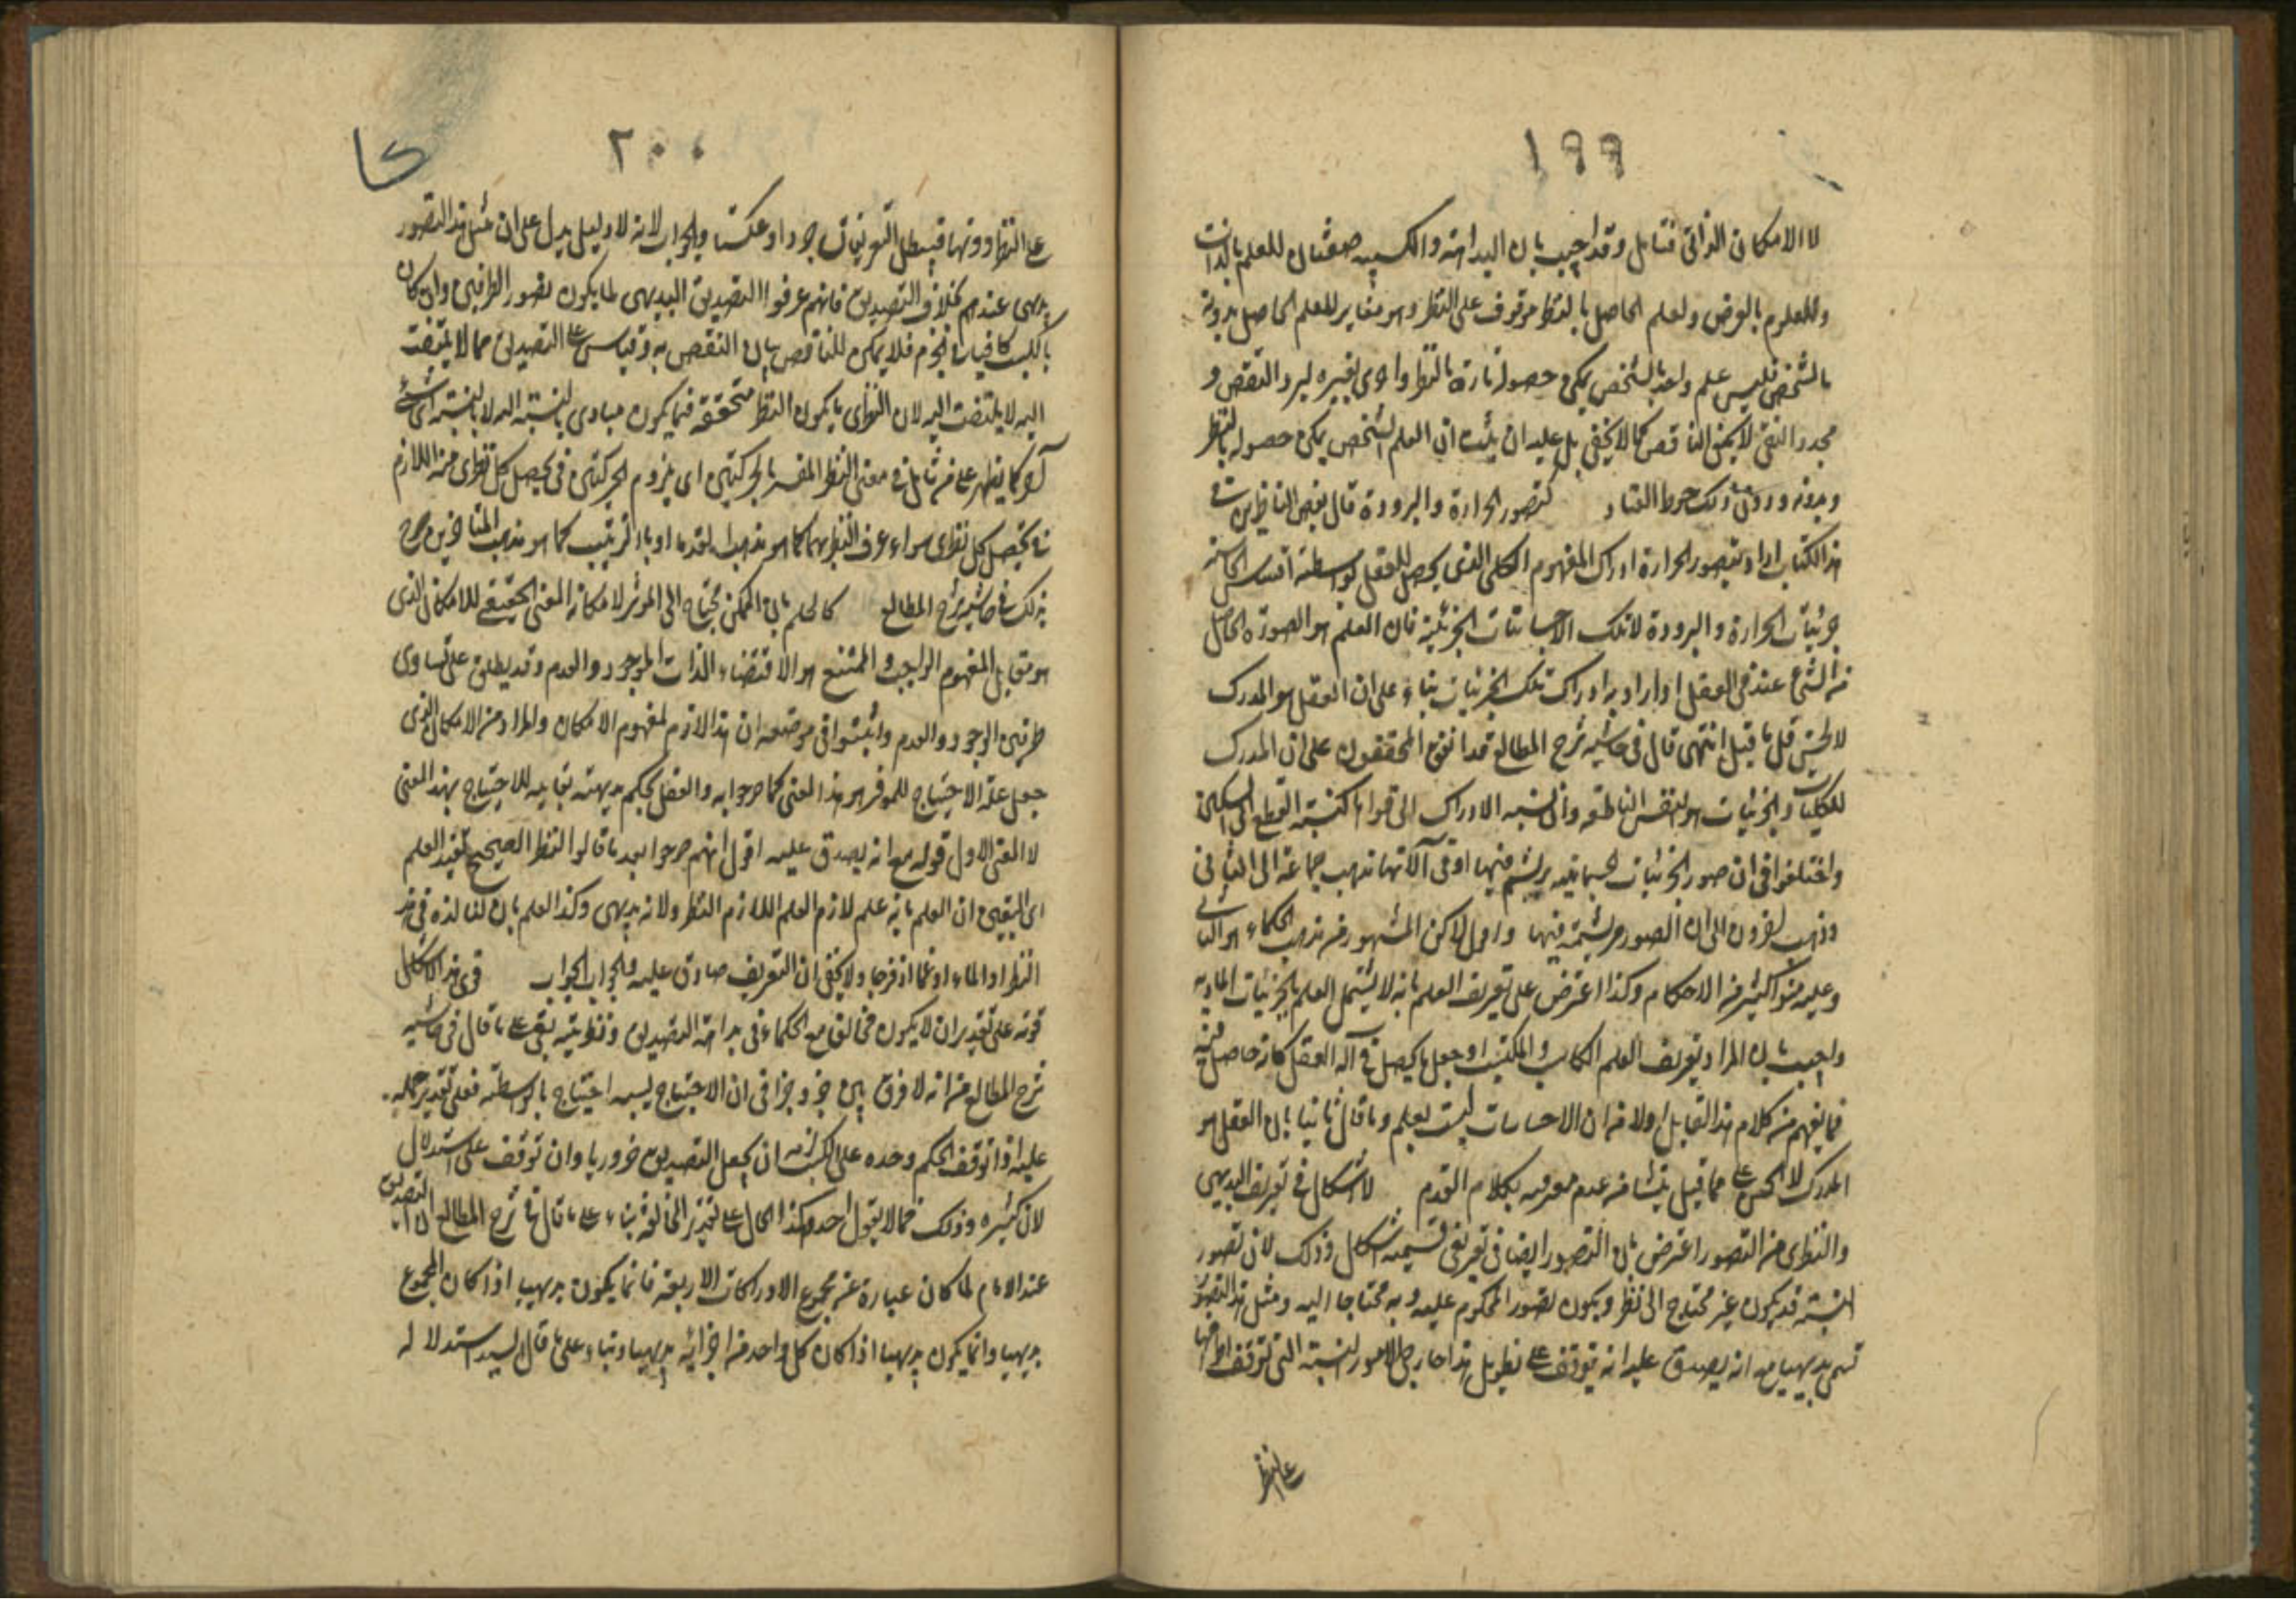 ١٩٩
لا الامكان الذاتى فتامل وقد اجيب بان البداهة والكسبية صفتان للعلم بالذات
وللمعلوم بالعرض والعلم الحاصل بالنظر موقوف على النظر وهو مغاير للعلم الحاصل بدونه
بالشخص فليس علم واحد بالشخص يمكن حصوله تارة بالنظر واخرى بغيره ليرد النقض و
مجرد النقى لا يكفى الناقص كما لا يخفى بل عليه ان يثبت ان العلم الشخصى يمكن حصوله بالنظر
وبدونه ودون ذلك خرط القتاد كتصور الحرارة والبرودة قال بعض الناظرين فى
هذا الكتاب اراد بتصور الحرارة ادراك المفهوم الكلى الذى يحصل للعقل بواسطة احساس الحاسة
جزئيات الحرارة والبرودة لا تلك الاحساسات الجزئية فان العلم هو الصورة الحاصلة
من الشئ عند فى العقل او اراد به ادراك تلك الجزئيات بناء على ان العقل هو المدرك
لا الحس قل ما قيل انتهى قال فى حاشية شرح المطالع قد اتفق المحققون على ان المدرك
للكليات والجزئيات هو النفس الناطقة وان نسبة الادراك الى قواها كنسبة القطع الى السكين
واختلفوا فى ان صور الجزئيات الجسمانية ترتسم فيها او فى آلاتها فذهب جماعة الى الثانى
وذهب آخرون الى ان الصور مرتسمة فيها لكن المشهور من مذهب الحكماء هو الثانى
وعليه بنوا كثيرا من الاحكام وكذا اعترض على تعريف العلم بانه لا يشمل العلم بالجزئيات المادية
واجيب بان المراد بتعريف العلم الكاسب والمكتسب او جعل ما يحصل فى آلة العقل كانه حاصل فيه
فما يفهم من كلام هذا القايل اولا من ان الاحساسات ليست بعلم وما قال ثانيا بان العقل هو
المدرك لا الحس على ما قيل ينشا من عدم معرفته بكلام القوم لا اشكال فى تعريف البديهى
والنظرى من التصور اعترض بان التصور ايضا فى تعريفى قسيمه اشكال وذلك لان تصور
النسبة قد يكون غير محتاج الى نظر ويكون تصور المحكوم عليه و به محتاجا اليه ومثل هذا التصور
تسمى بديهيا مع انه يصدق عليه انه يتوقف على نظر بل هذا جار فى الامور النسبية التى تتوقف اطرافها
على النظر
٢٠٠
على النظر دونها فيبطل التعريفان طردا وعكسا والجواب لانه لا دليل يدل على ان مثل هذا التصور
بديهى عندهم بخلاف التصديق فانهم عرفوا التصديق البديهى بما يكون تصور الطرفين وان كان
بالكسب كافيا فى الجزم فلا يمكن للناقض بيان النقض به وقياس على التصديق مما لا يلتفت
اليه لا يلتفت اليه لان النظرى ما يكون النظر متحققة فيما يكون مبادى بالنسبة اليه لا بالنسبة الى شئ
آخر كما يظهر على من تامل فى معنى النظر المفسر بالحركتين اى يلزوم الحركتين فى تحصيل كل نظرى من اللازم
فى تحصيل كل نظرى سواء عرف النظر بهما كما هو مذهب القدماء او بالترتيب كما هو مذهب المتاخرين صرح
بذلك فى حاشية شرح المطالع كالعلم بان الممكن محتاج الى المؤثر لامكانه المعنى الحقيقى للامكان الذى
هو مقابل المفهوم الواجب والممتنع هو الا اقتضاء الذات الوجود والعدم وقد يطلق على تساوى
طرفى الوجود والعدم واثبتوا فى موضعه ان هذا لازم لمفهوم الامكان والمراد من الامكان الذى
جعل علة الاحتياج للموثر هو هذا المعنى كما صرحوا به والعقل يحكم بديهته بقابليه للاحتياج بهذا المعنى
لا المعنى الاول قوله مع انه يصدق عليه اقول انهم صرحوا بعد ما قالوا النظر الصحيح يفيد العلم
اى اليقين ان العلم بانه علم لازم العلم اللازم النظر ولانه بديهى وكذا العلم بان لنا لذة فى هذا
النظر او الماء او غما او فرحا ولا يخفى ان التعريف صادق عليه والجواب الجواب قوى هذا الاشكال
قوته على تقدير ان لا يكون مخالف مع الحكماء فى بداهة التصديق ونظريته بقى على ما قال فى حاشية
شرح المطالع من انه لا فرق بين جزء وجزء فى ان الاحتياج بسببه احتياج بالواسطة فعلى تقدير حمله
عليه اذا توقف الحكم وحده على الكسب لزمه ان يجعل التصديق ضروريا وان توقف على استدلال
لان كثيره وذلك مما لا يقول احد وكذا الحال على تقدير المخالفة بناء على ما قال فى شرح المطالع ان التصديق
عند الامام لما كان عبارة عن مجموع الادراكات الاربعة فانما يكون بديهيا اذا كان المجموع
بديهيا وانما يكون بديهيا اذا كان كل واحد من اجزائه بديهيا وبناء على ما قال السيد استدلاله